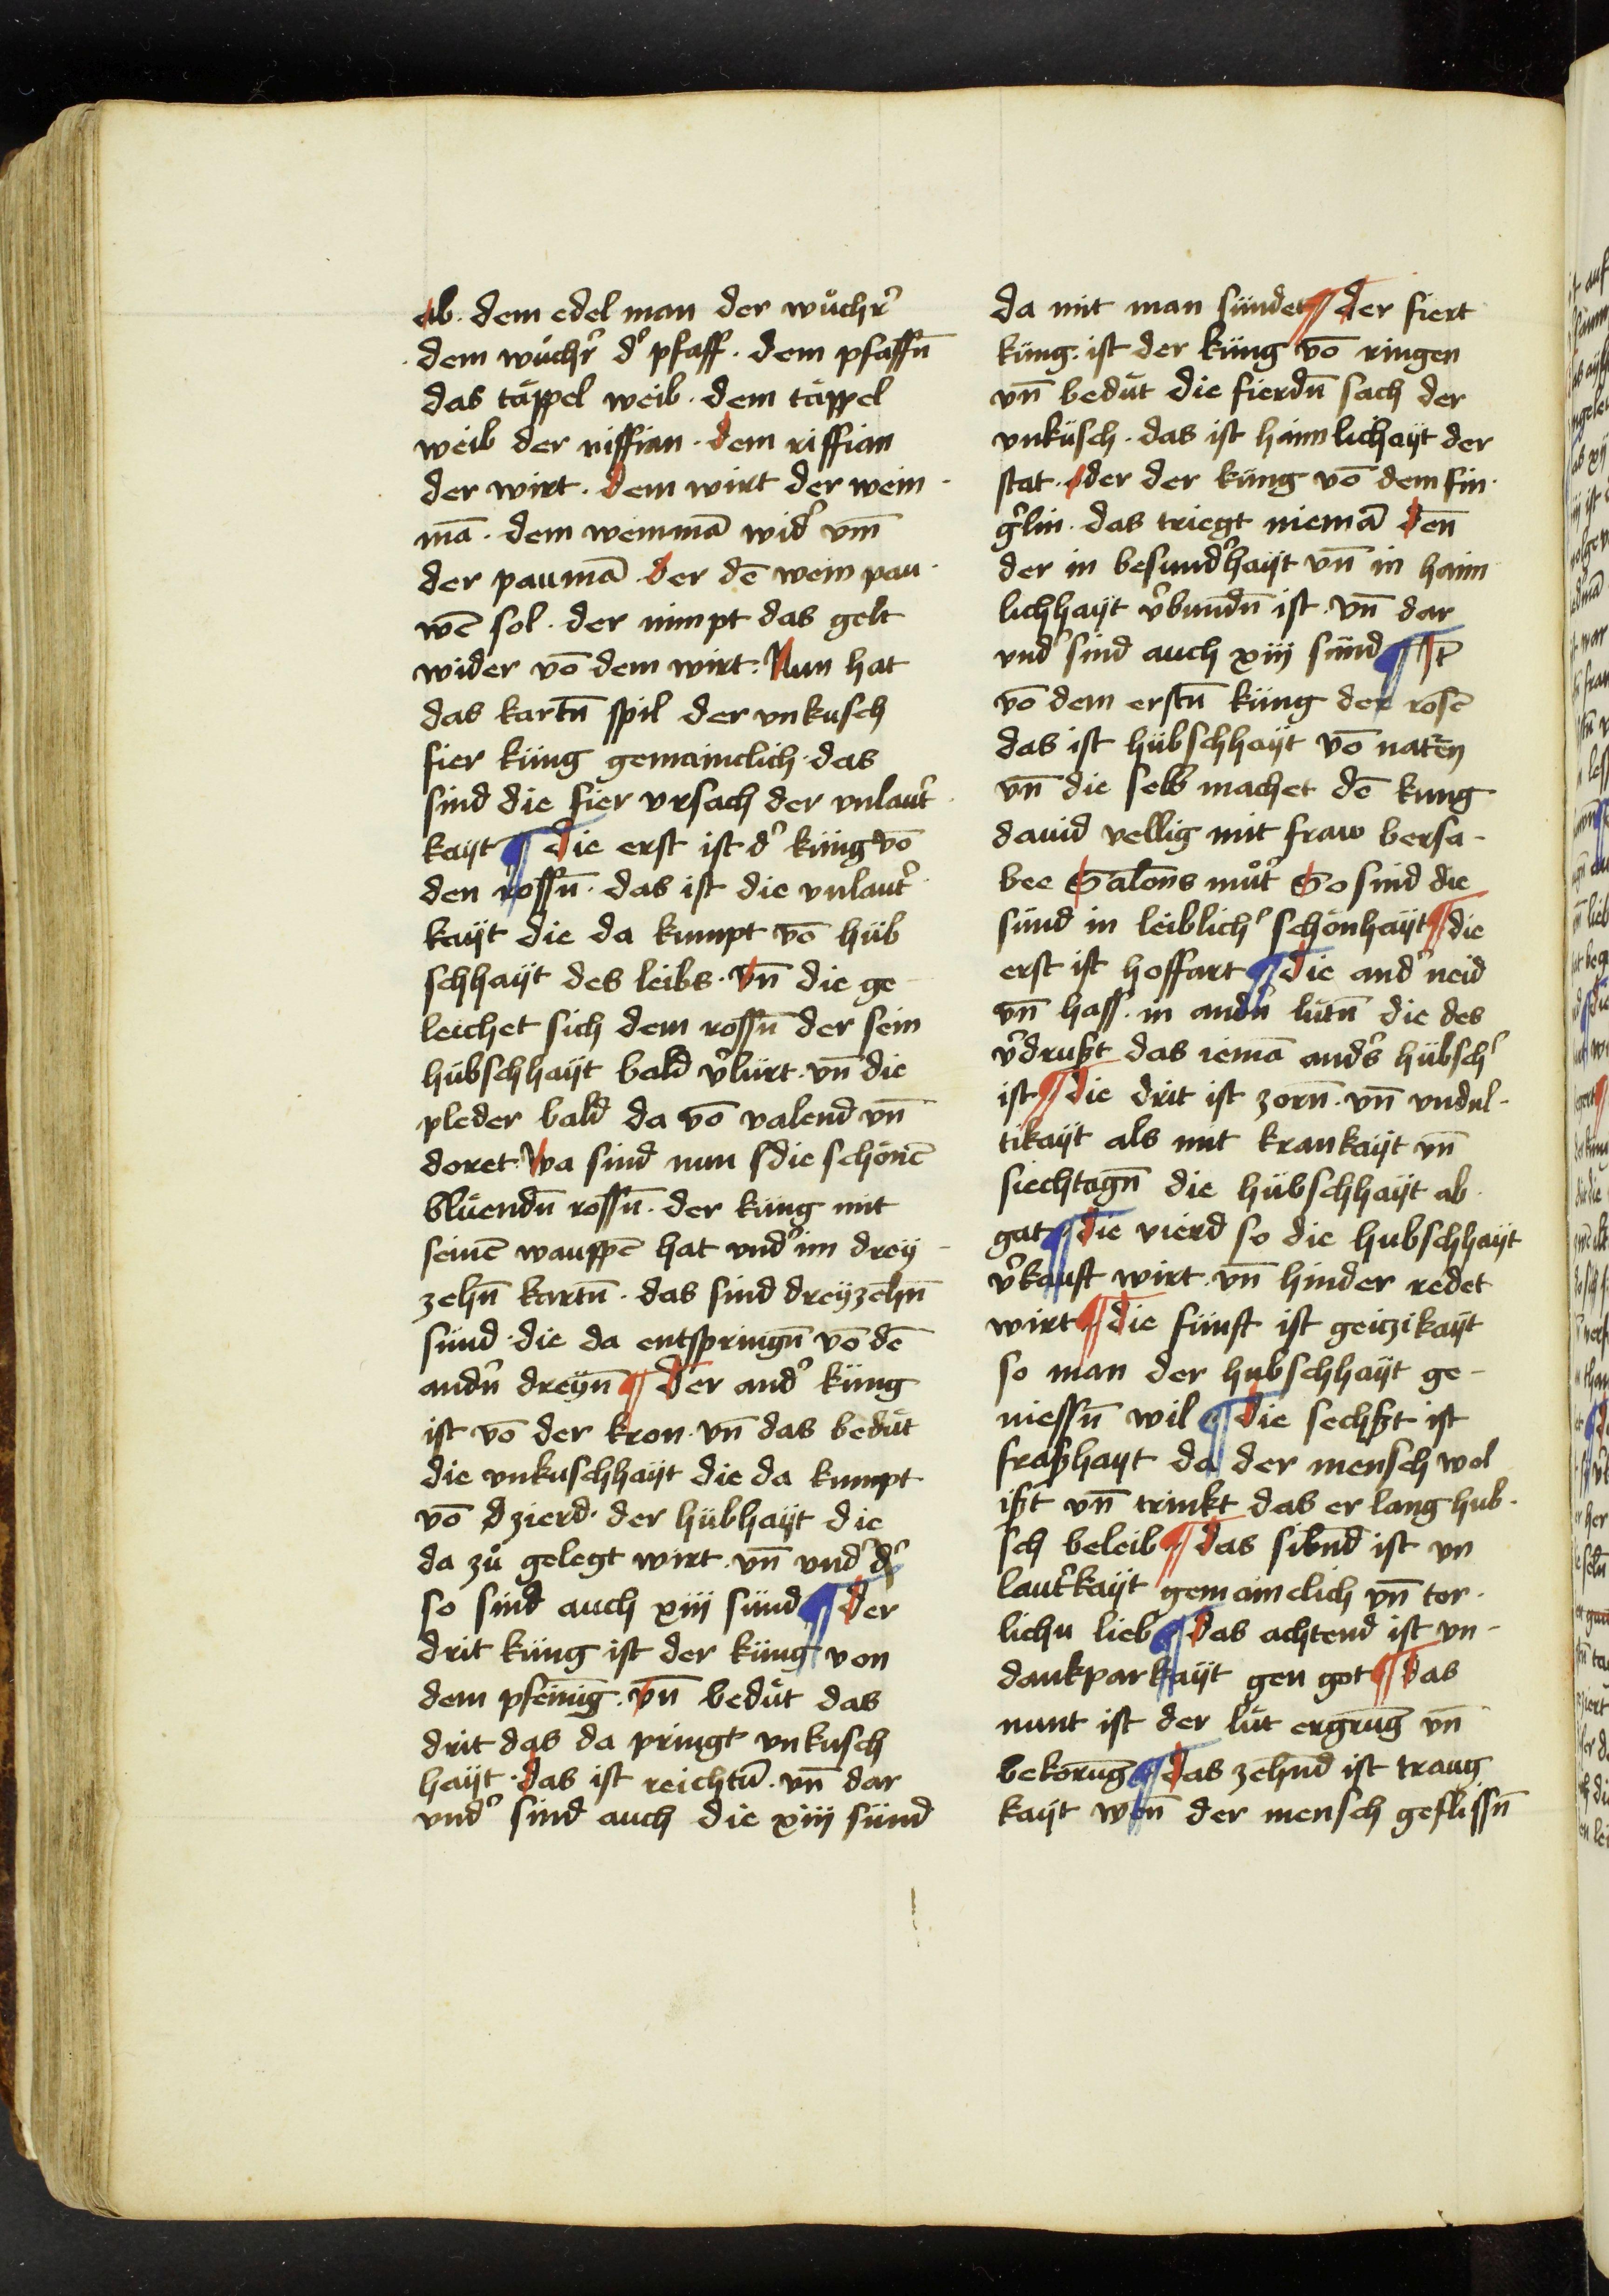 ab. dem edel man der wůchr̉
dem wůchr̉ d̉ pfaff. dem pfaffn̄
das täppel weib. dem täppel
weib der riffian. dem riffian
der wirt. dem wirt der wein
mā. dem weinmā wid̉ vm̄
der paumā. der dē wein pau
wē sol. der nimpt das gelt
wider vō dem wirt. Nun hat
das kartn̄ spil der vnkusch
fier küng gemainclich. das
sind die fier vrsach der vnlaut̉
kayt ¶ die erst ist d̉ küng vō
den rossn̄. das ist die vnlaut̉
kayt die da kumpt vō hüb
schhayt des leibs. vn̄ die ge
leichet sich dem rossn̄ der sein
hübschhayt bald v̉lürt. vn̄ die
pleder bald da vō valend vn̄
doret. wa sind nun die schönē
blüendn̄ rossn̄. der küng mit
seinē wauppē hat vnd̉ im drey
zehn̄ kartn̄. das sind dreyzehn̄
sünd. die da entspringn̄ vō dē
andn̉ dreyn̄ ¶ der and̉ küng
ist vō der kron. vn̄ das bedüt
die vnkuschhayt die da kumpt
vō d zierd. der hübhayt die
da zů gelegt wirt. vn̄ vnd̉ d̉
so sind auch xiij sünd ¶ der
drit küng ist der küng von
dem pfennīg. vn̄ bedüt das
drit das da pringt vnkusch
hayt. das ist reichtū. vn̄ dar
vnd̉ sind auch die xiij sünd
da mit man sündet ¶ der fiert
küng. ist der küng vō ringen
vn̄ bedüt die fierdn̄ sach der
vnküsch. das ist haimlichayt der
stat. oder der küng vō dem fin
g̉lin. das triegt niemā den̄
der in besund̉hayt vn̄ in haim
lichhayt v̉bundn̄ ist. vn̄ dar
vnd̉ sind auch xiij sünd ¶ It̄
vō dem erstn̄ küng der rosē
das ist hübschhayt vō naturn̄
vn̄ die selb machet dē kung
dauid vellig mit fraw bersa
bee Salōns můt̉ So sind die
sünd in leiblich̉ schönhayt ¶ die
erst ist hoffart ¶ die and̉ neid
vn̄ hass. in andn̉ lütn̄ die des
v̉drußt das iemā and̉s hübsch̉
ist ¶ die drit ist zorn. vn̄ vndul
tikayt als mit krankayt vn̄
siechtagn̄ die hübschhayt ab
gat ¶ die vierd so die hubschhayt
v̉kauft wirt. vn̄ hinder redet
wirt ¶ die fünft ist geiczikayt
so man der hubschhayt ge
niessn̄ wil ¶ die sechßt ist
fraßhayt da der mensch wol
ißt vn̄ trinkt das er lang hub
sch beleib ¶ das sibn̄d ist vn
laut̉kayt gemainclich vn̄ tor
lichu lieb ¶ das achtend ist vn
dankparkayt gen got ¶ das
nunt ist der lüt ergrūg vn̄
bekorūg ¶ das zehn̄d ist traug
kayt wen̄ der mensch geflissn̄